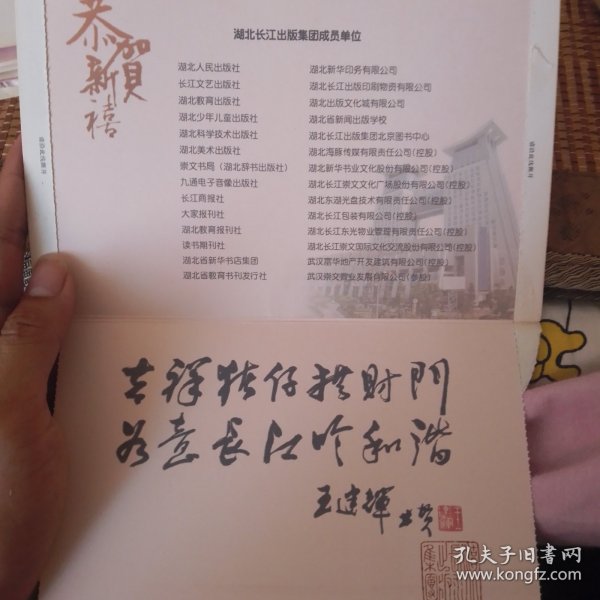 恭贺新禧
湖北长江出版集团成员单位
湖北人民出版社
长江文艺出版社
湖北教育出版社
湖北少年儿童出版社
湖北科学技术出版社
湖北美术出版社
崇文书局（湖北辞书出版社）
九通电子音像出版社
长江商报社
大家报刊社
湖北教育报刊社
读书期刊社
湖北省新华书店集团
湖北省教育书刊发行社
湖北新华印务有限公司
湖北长江出版印刷物资有限公司
湖北出版文化城有限公司
湖北省新闻出版学校
湖北长江出版集团北京图书中心
湖北海豚传媒有限责任公司(控股)
湖北新华书业文化股份有限公司(控股)
湖北长江崇文文化广场股份有限公司(控股)
湖北东湖光盘技术有限责任公司(控股)
湖北长江包装有限公司(控股)
湖北长江东光物业管理有限责任公司(控股)
湖北长江崇文国际文化交流股份有限公司(控股)
武汉富华地产开发建筑有限公司(控股)
武汉崇文置业发展有限公司(参股)
吉祥猪仔拱财門
为意長江吟和谐
王建輝
孔夫子旧书网
www.kongfz.com